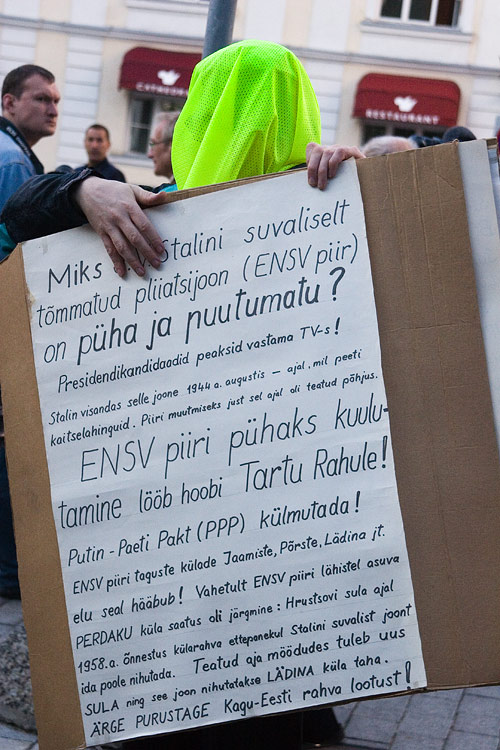 CATHEDRAL
RESTAURANT
Miks Stalini suvaliselt
tõmmatud pliiatsijoon (ENSV piir)
on püha ja puutumatu?
Presidendikandidaadid peaksid vastama TV-s!
Stalin visandas selle joone 1944 a. augustis – ajal, mil peeti
kaitselahinguid. Piiri muutmiseks just sel ajal oli teatud põhjus.
ENSV piiri pühaks kuulu-
tamine lööb hoobi Tartu Rahule!
Putin-Paeti Pakt (PPP) külmutada!
ENSV piiri taguste külade Jaamiste, Põrste, Lädina jt.
elu seal hääbub! Vahetult ENSV piiri lähistel asuva
PERDAKU küla saatus oli järgmine: Hrustsovi sula ajal
1958.a. õnnestus külarahva ettepanekul Stalini suvalist joont
ida poole nihutada. Teatud aja möödudes tuleb uus
SULA ning see joon nihutatakse LÄDINA küla taha.
ÄRGE PURUSTAGE Kagu-Eesti rahva lootust!